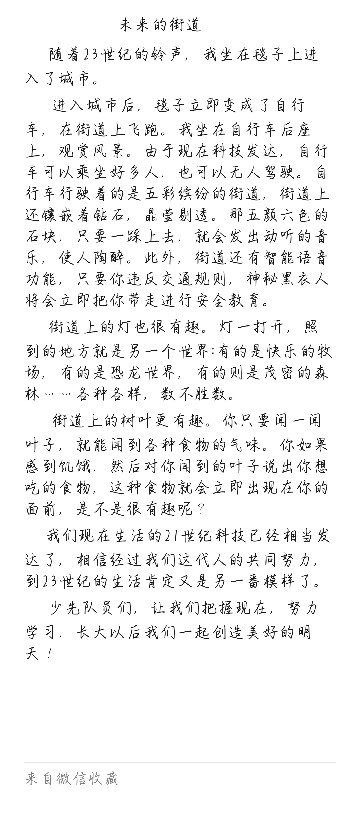 未来的街道
随着23世纪的铃声，我坐在毯子上进
入了城市。
进入城市后，毯子立即变成了自行
车，在街道上飞跑。我坐在自行车后座
上，观赏风景。由于现在科技发达，自行
车可以乘坐好多人，也可以无人驾驶。自
行车行驶着的是五彩缤纷的街道，街道上
还镶嵌着钻石，晶莹剔透。那五颜六色的
石块，只要一踩上去，就会发出动听的音
乐，使人陶醉。此外，街道还有智能语音
功能，只要你违反交通规则，神秘黑衣人
将会立即把你带走进行安全教育。
街道上的灯也很有趣。灯一打开，照
到的地方就是另一个世界:有的是快乐的牧
场，有的是恐龙世界，有的则是茂密的森
林……各种各样，数不胜数。
街道上的树叶更有趣。你只要闻一闻
叶子，就能闻到各种食物的气味。你如果
感到饥饿，然后对你闻到的叶子说出你想
吃的食物，这种食物就会立即出现在你的
面前，是不是很有趣呢？
我们现在生活的21世纪科技已经相当发
达了，相信经过我们这代人的共同努力，
到23世纪的生活肯定又是另一番模样了。
少先队员们，让我们把握现在，努力
学习，长大以后我们一起创造美好的明
天！
来自微信收藏